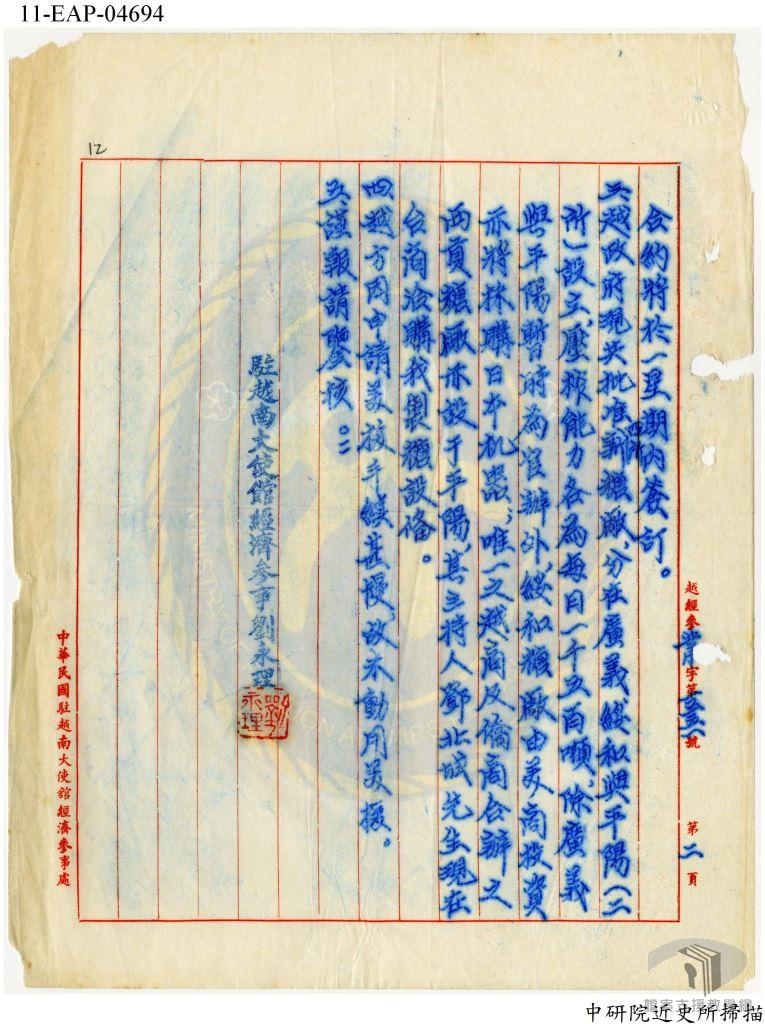 11-EAP-04694
12
越經參字第號 第二頁
合約將於一星期內簽訂。
三越政府現共批准新糖廠分在廣義綏和與平陽(二
所)設立,壓榨能力各為每日一千五百噸,除廣義
與平陽暫時為官辦外,綏和糖廠由美商投資
亦將採購日本机器,唯一之越商及僑商合辦之
西貢糖廠亦設于平陽,其主持人鄧北城先生現在
台商洽購我製糖設備。
四越方因申請美援手續甚慢,故不動用美援。
五謹報請鑒核。
駐越南大使館經濟參事劉永理
劉永理
中華民國駐越南大使館經濟參事處
檔案支援教學網
中研院近史所掃描